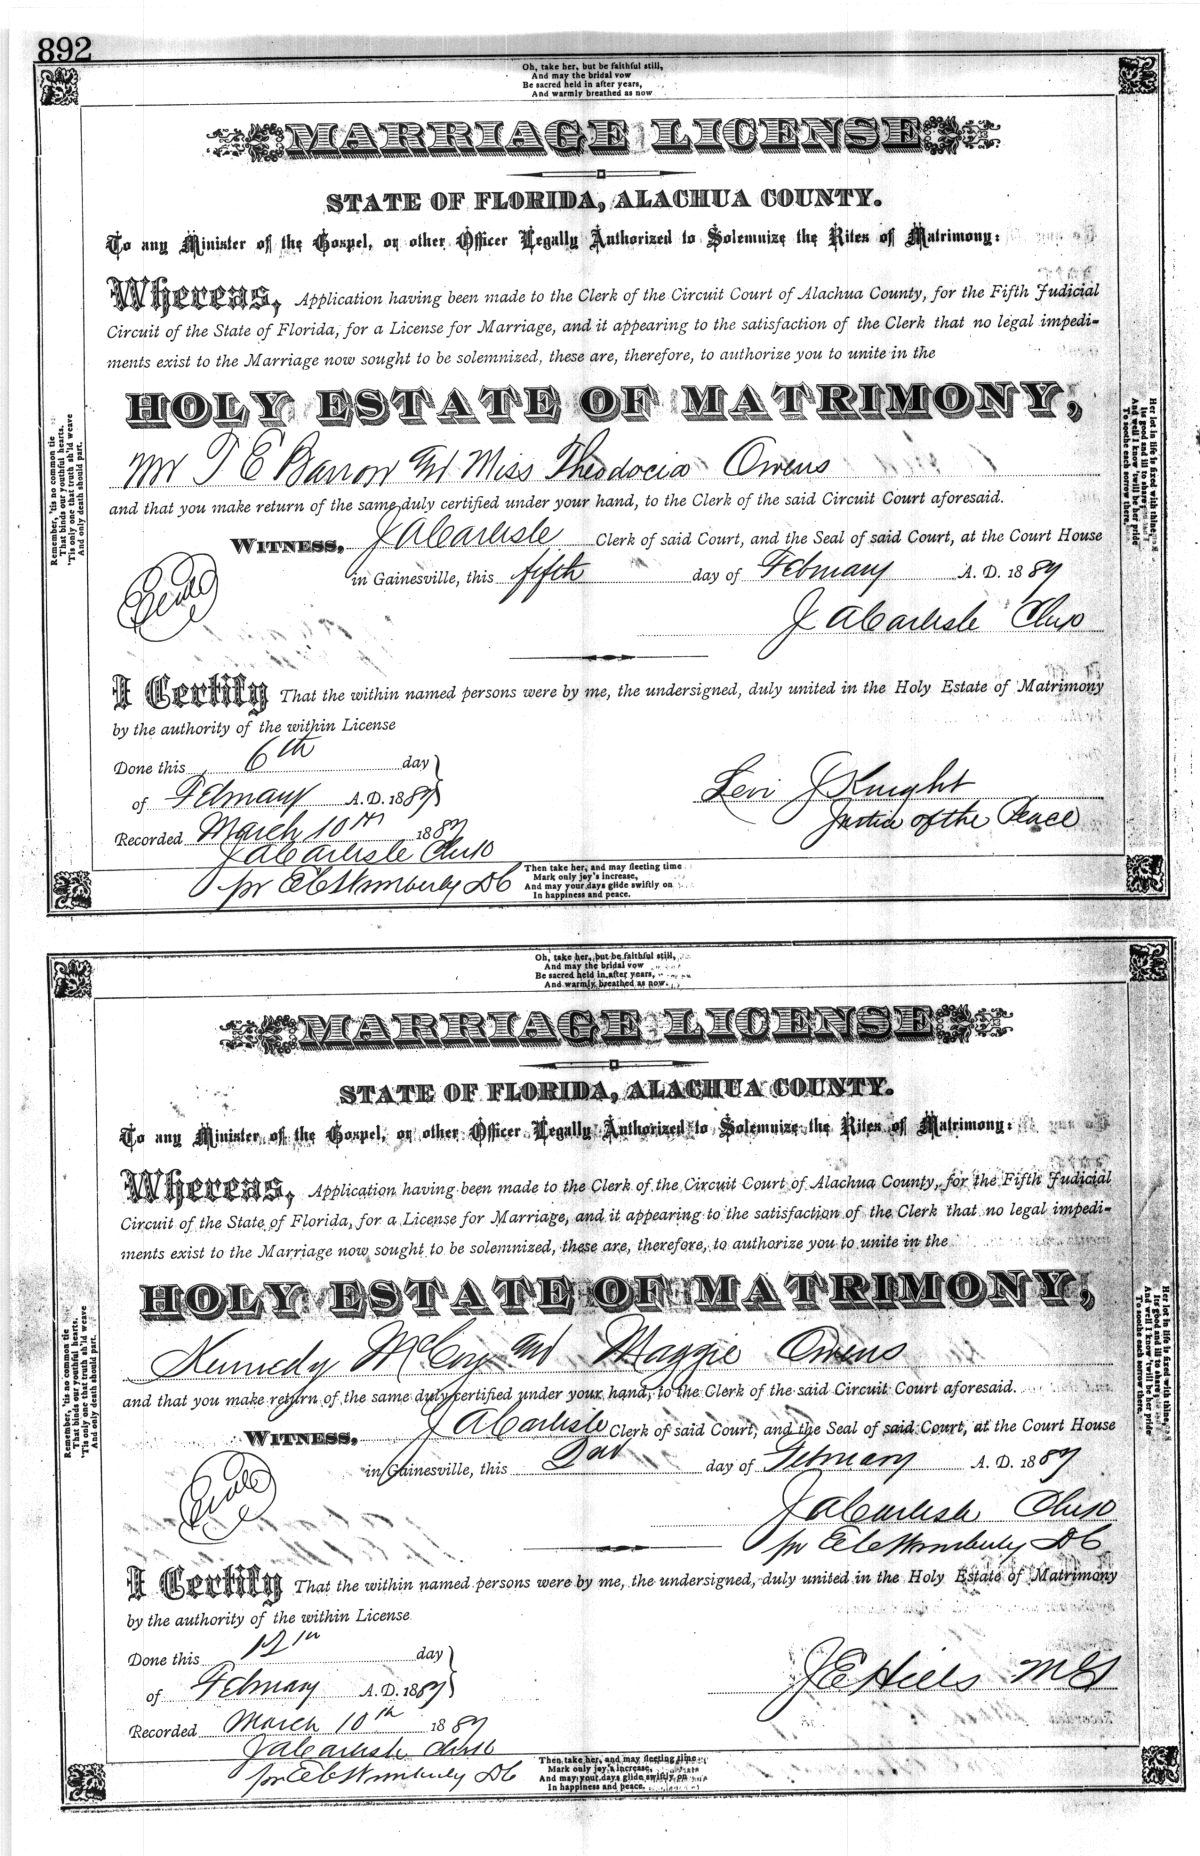 892
Oh, take her, but be faithful still,
And may the bridal vow
Be sacred held in after years,
And warmly breathed as now
MARRIAGE LICENSE
STATE OF FLORIDA, ALACHUA COUNTY.
To any Minister of the Gospel, or other Officer Legally Authorized to Solemnize the Rites of Matrimony:
Whereas, Application having been made to the Clerk of the Circuit Court of Alachua County, for the Fifth Judicial
Circuit of the State of Florida, for a License for Marriage, and it appearing to the satisfaction of the Clerk that no legal impedi-
ments exist to the Marriage now sought to be solemnized, these are, therefore, to authorize you to unite in the
HOLY ESTATE OF MATRIMONY,
Mr T E Barron and Miss Theodocia Owens
and that you make return of the same duly certified under your hand, to the Clerk of the said Circuit Court aforesaid.
WITNESS, J A Carlisle Clerk of said Court, and the Seal of said Court, at the Court House
in Gainesville, this fifth day of February A. D. 1887
J A Carlisle Clerk
I Certify That the within named persons were by me, the undersigned, duly united in the Holy Estate of Matrimony
by the authority of the within License
Done this 6th day
of February A. D. 1887
Levi J Knight
Justice of the Peace
Recorded March 10th 1887
J A Carlisle Clerk
pr E C Wimberly DC
Remember, 'tis no common tie
That binds our youthful hearts,
'Tis only one that truth sh'ld weave
And only death should part.
Her lot in life is fixed with thine,
Its good and ill to share,
And well I know 'twill be her pride
To soothe each sorrow there.
Then take her, and may fleeting time
Mark only joy's increase,
And may your days glide swiftly on
In happiness and peace.
Oh, take her, but be faithful still,
And may the bridal vow
Be sacred held in after years,
And warmly breathed as now.
MARRIAGE LICENSE
STATE OF FLORIDA, ALACHUA COUNTY.
To any Minister of the Gospel, or other Officer Legally Authorized to Solemnize the Rites of Matrimony:
Whereas, Application having been made to the Clerk of the Circuit Court of Alachua County, for the Fifth Judicial
Circuit of the State of Florida, for a License for Marriage, and it appearing to the satisfaction of the Clerk that no legal impedi-
ments exist to the Marriage now sought to be solemnized, these are, therefore, to authorize you to unite in the
HOLY ESTATE OF MATRIMONY,
Kennedy McCoy and Maggie Owens
and that you make return of the same duly certified under your hand, to the Clerk of the said Circuit Court aforesaid.
WITNESS, J A Carlisle Clerk of said Court, and the Seal of said Court, at the Court House
in Gainesville, this 2nd day of February A. D. 1887
J A Carlisle Clerk
pr E C Wimberly DC
I Certify That the within named persons were by me, the undersigned, duly united in the Holy Estate of Matrimony
by the authority of the within License
Done this 12th day
of February A. D. 1887
J E Hills MG
Recorded March 10th 1887
J A Carlisle Clerk
pr E C Wimberly DC
Remember, 'tis no common tie
That binds our youthful hearts,
'Tis only one that truth sh'ld weave
And only death should part.
Her lot in life is fixed with thine,
Its good and ill to share,
And well I know 'twill be her pride
To soothe each sorrow there.
Then take her, and may fleeting time
Mark only joy's increase,
And may your days glide swiftly on
In happiness and peace.